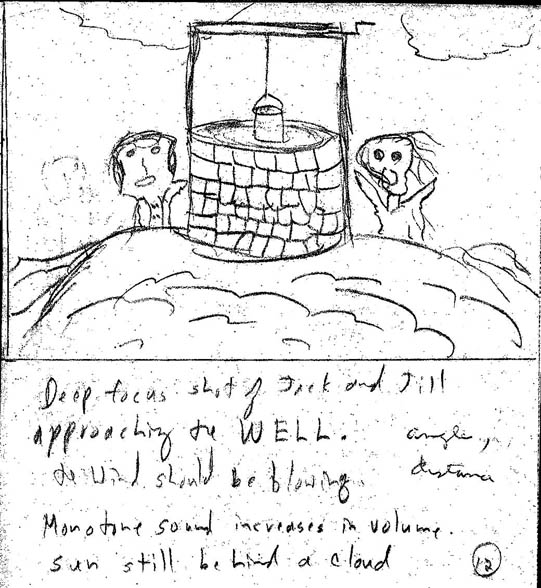 Deep focus shot of Jack and Jill
approaching the WELL.
angle,
distance
the wind should be blowing
Monotone sound increases in volume.
sun still behind a cloud
12